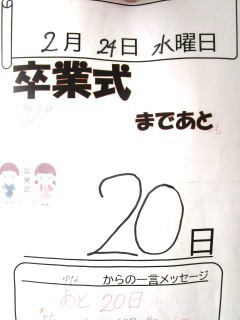 2月24日 水曜日
卒業式
まであと
卒業式
20日
からの一言メッセージ
あと20日